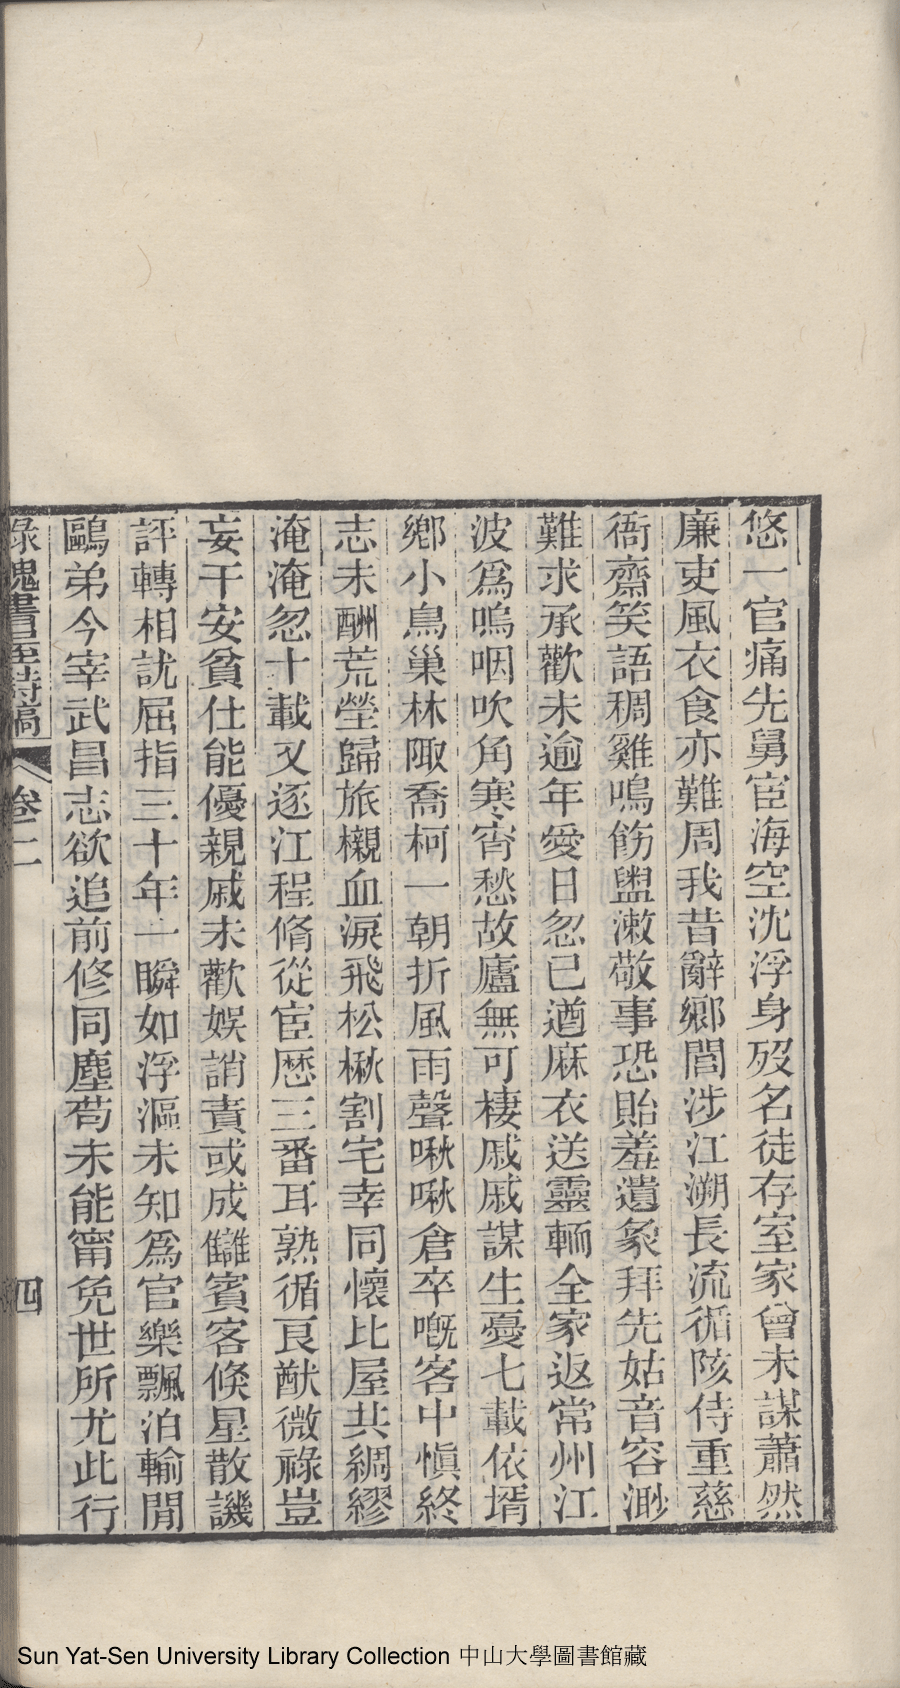 悠一官痛先舅宦海空沈浮身歿名徒存室家曾未謀蕭然
廉吏風衣食亦難周我昔辭鄉閭涉江溯長流循陔侍重慈
衙齋笑語稠雞鳴飭盥漱敬事恐貽羞遺象拜先姑音容渺
難求承歡未逾年愛日忽已遒麻衣送靈輀全家返常州江
波爲嗚咽吹角寒宵愁故廬無可棲戚戚謀生憂七載依壻
鄉小鳥巢林陬喬柯一朝折風雨聲啾啾倉卒嘅客中愼終
志未酬荒塋歸旅櫬血淚飛松楸割宅幸同懷比屋共綢繆
淹淹忽十載又逐江程脩從宦歷三番耳熟循良猷微祿豈
妄干安貧仕能優親戚未歡娛誚責或成讎賓客倏星散譏
評轉相訧屈指三十年一瞬如浮漚未知爲官樂飄泊輸閒
鷗弟今宰武昌志欲追前修同塵苟未能甯免世所尤此行
綠槐書屋詩稿 卷二 四
Sun Yat-Sen University Library Collection 中山大學圖書館藏